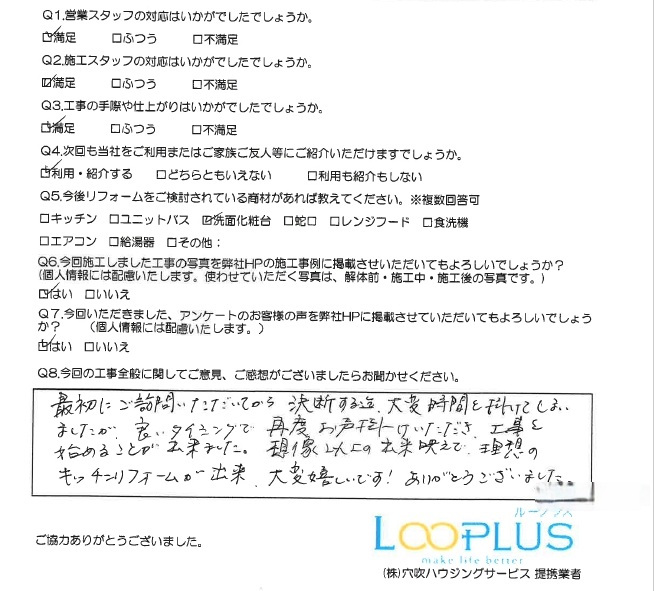 Q1.営業スタッフの対応はいかがでしたでしょうか。
☑満足 □ふつう □不満足
Q2.施工スタッフの対応はいかがでしたでしょうか。
☑満足 □ふつう □不満足
Q3.工事の手際や仕上がりはいかがでしたでしょうか。
☑満足 □ふつう □不満足
Q4.次回も当社をご利用またはご家族ご友人等にご紹介いただけますでしょうか。
☑利用・紹介する □どちらともいえない □利用も紹介もしない
Q5.今後リフォームをご検討されている商材があれば教えてください。※複数回答可
□キッチン □ユニットバス ☑洗面化粧台 □蛇口 □レンジフード □食洗機
□エアコン □給湯器 □その他：
Q6.今回施工しました工事の写真を弊社HPの施工事例に掲載させいただいてもよろしいでしょうか？
(個人情報には配慮いたします。使わせていただく写真は、解体前・施工中・施工後の写真です。)
☑はい □いいえ
Q7.今回いただきました、アンケートのお客様の声を弊社HPに掲載させていただいてもよろしいでしょう
か？ (個人情報には配慮いたします。)
☑はい □いいえ
Q8.今回の工事全般に関してご意見、ご感想がございましたらお聞かせください。
最初にご訪問いただいてから 決断する迄、大変時間を掛けてしまい
ましたが、良いタイミングで 再度 お声掛けいただき、工事を
始めることが出来ました。想像以上の出来映えで、理想の
キッチンリフォームが出来、大変嬉しいです! ありがとうございました。
ループラス
LOOPLUS
make life better
ご協力ありがとうございました。
(株)穴吹ハウジングサービス 提携業者